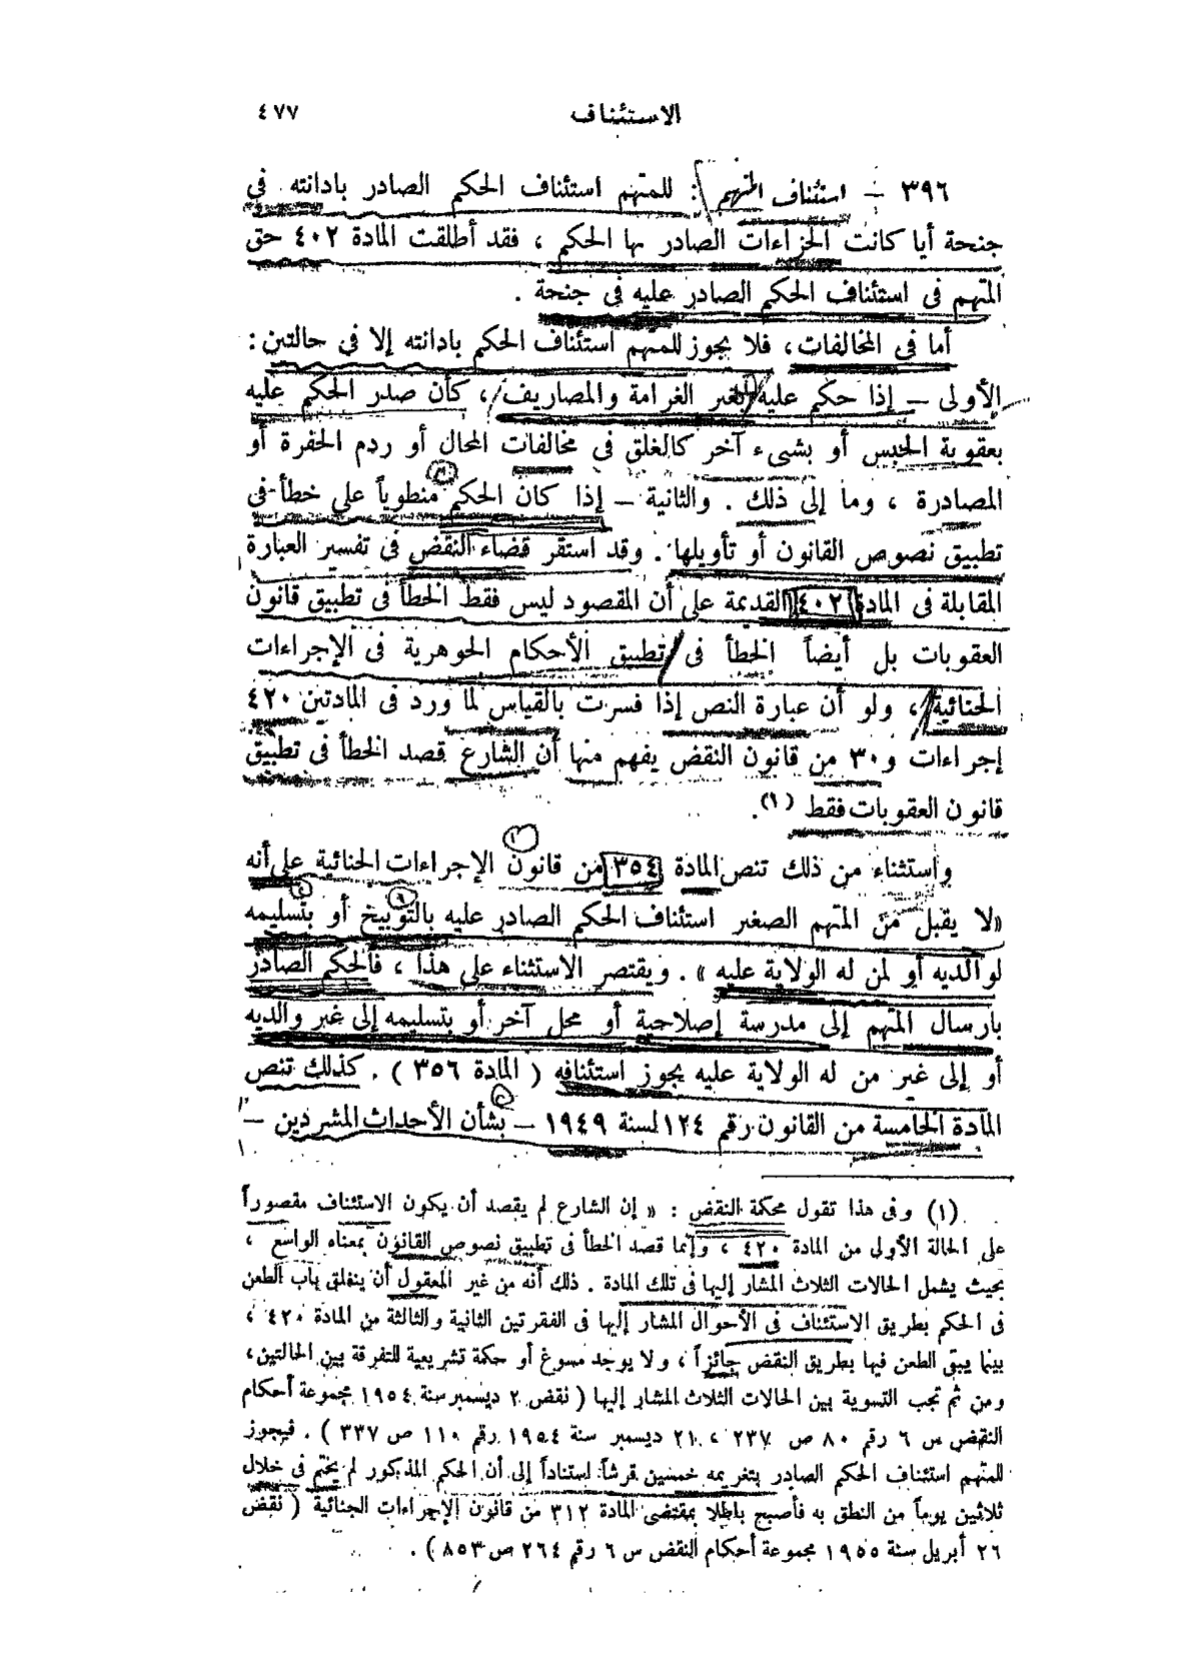 الاستئناف ٤٧٧
٣٩٦ – استئناف المتهم : للمتهم استئناف الحكم الصادر بادانته فى
جنحة أيا كانت الجزاءات الصادر بها الحكم ، فقد أطلقت المادة ٤٠٢ حق
المتهم فى استئناف الحكم الصادر عليه فى جنحة .
أما فى المخالفات ، فلا يجوز للمتهم استئناف الحكم بادانته إلا فى حالتين :
الأولى – إذا حكم عليه بغير الغرامة والمصاريف ، كأن صدر الحكم عليه
بعقوبة الحبس أو بشىء آخر كالغلق فى مخالفات المحال أو ردم الحفرة أو
المصادرة ، وما إلى ذلك . والثانية – إذا كان الحكم منطوياً على خطأ فى
تطبيق نصوص القانون أو تأويلها . وقد استقر قضاء النقض فى تفسير العبارة
المقابلة فى المادة ٤٠٢ القديمة على أن المقصود ليس فقط الخطأ فى تطبيق قانون
العقوبات بل أيضاً الخطأ فى تطبيق الأحكام الجوهرية فى الإجراءات
الجنائية ، ولو أن عبارة النص إذا فسرت بالقياس لما ورد فى المادتين ٤٢٠
إجراءات و ٣٠ من قانون النقض يفهم منها أن الشارع قصد الخطأ فى تطبيق
قانون العقوبات فقط (١).
واستثناء من ذلك تنص المادة ٣٥٤ من قانون الإجراءات الجنائية على أنه
« لا يقبل من المتهم الصغير استئناف الحكم الصادر عليه بالتوبيخ أو بتسليمه
لوالديه أو لمن له الولاية عليه » . ويقتصر الاستثناء على هذا ، فالحكم الصادر
بارسال المتهم إلى مدرسة إصلاحية أو محل آخر أو بتسليمه إلى غير والديه
أو إلى غير من له الولاية عليه يجوز استئنافه ( المادة ٣٥٦ ) . كذلك تنص
المادة الخامسة من القانون رقم ١٢٤ لسنة ١٩٤٩ – بشأن الأحداث المشردين –
(١) وفى هذا تقول محكمة النقض : « إن الشارع لم يقصد أن يكون الاستئناف مقصوراً
على الحالة الأولى من المادة ٤٢٠ ، وإنما قصد الخطأ فى تطبيق نصوص القانون بمعناه الواسع ،
بحيث يشمل الحالات الثلاث المشار إليها فى تلك المادة . ذلك أنه من غير المعقول أن ينغلق باب الطعن
فى الحكم بطريق الاستئناف فى الأحوال المشار إليها فى الفقرتين الثانية والثالثة من المادة ٤٢٠ ،
بينما يبقى الطعن فيها بطريق النقض جائزاً ، ولا يوجد مسوغ أو حكمة تشريعية للتفرقة بين الحالتين ،
ومن ثم تجب التسوية بين الحالات الثلاث المشار إليها ( نقض ٢ ديسمبر سنة ١٩٥٤ مجموعة أحكام
النقض س ٦ رقم ٨٠ ص ٢٣٧ ، ٢١ ديسمبر سنة ١٩٥٤ رقم ١١٠ ص ٣٣٧ ) . فيجوز
للمتهم استئناف الحكم الصادر بتغريمه خمسين قرشاً استناداً إلى أن الحكم المذكور لم يختم فى خلال
ثلاثين يوماً من النطق به فأصبح باطلا بمقتضى المادة ٣١٢ من قانون الإجراءات الجنائية ( نقض
٢٦ أبريل سنة ١٩٥٥ مجموعة أحكام النقض س ٦ رقم ٢٦٤ ص ٨٥٣ ) .